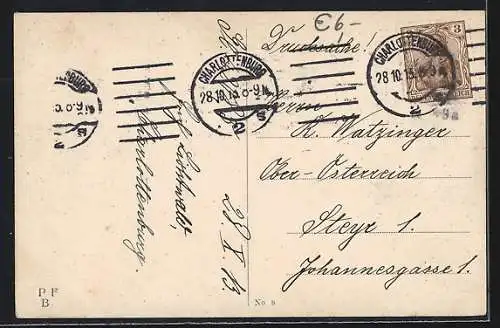 € 6,-
Drucksache!
3
CHARLOTTENBURG
28.10.13. 8-9N
2
CHARLOTTENBURG
28.10.13. 8-9N
* 2 s
Herrn
K. Watzinger
Ober-Österreich
Steyr 1.
Johannesgasse 1.
Charlottenburg.
28 X. 13
P F
B
No 9